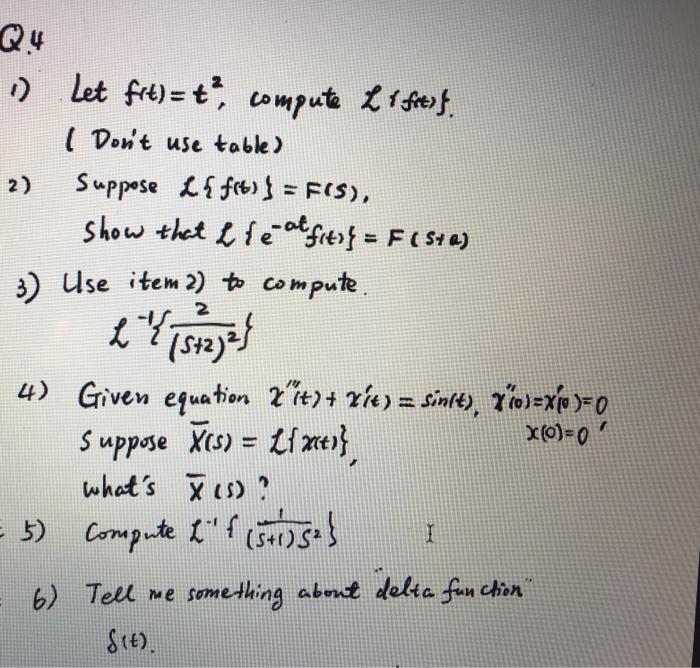 Q.4
1) Let f(t) = t², compute L{f(t)}.
( Don't use table)
2) Suppose L{f(t)} = F(S),
Show that L{e^-at f(t)} = F(S+a)
3) Use item 2) to compute.
L^-1{2/(S+2)²}
4) Given equation x'''(t) + x'(t) = sin(t), x''(0) = x'(0) = 0
Suppose X̄(s) = L{x(t)}, x(0) = 0,
what's X̄(s) ?
5) Compute L^-1{1/((S+1)S²)}
6) Tell me something about "delta function"
δ(t).